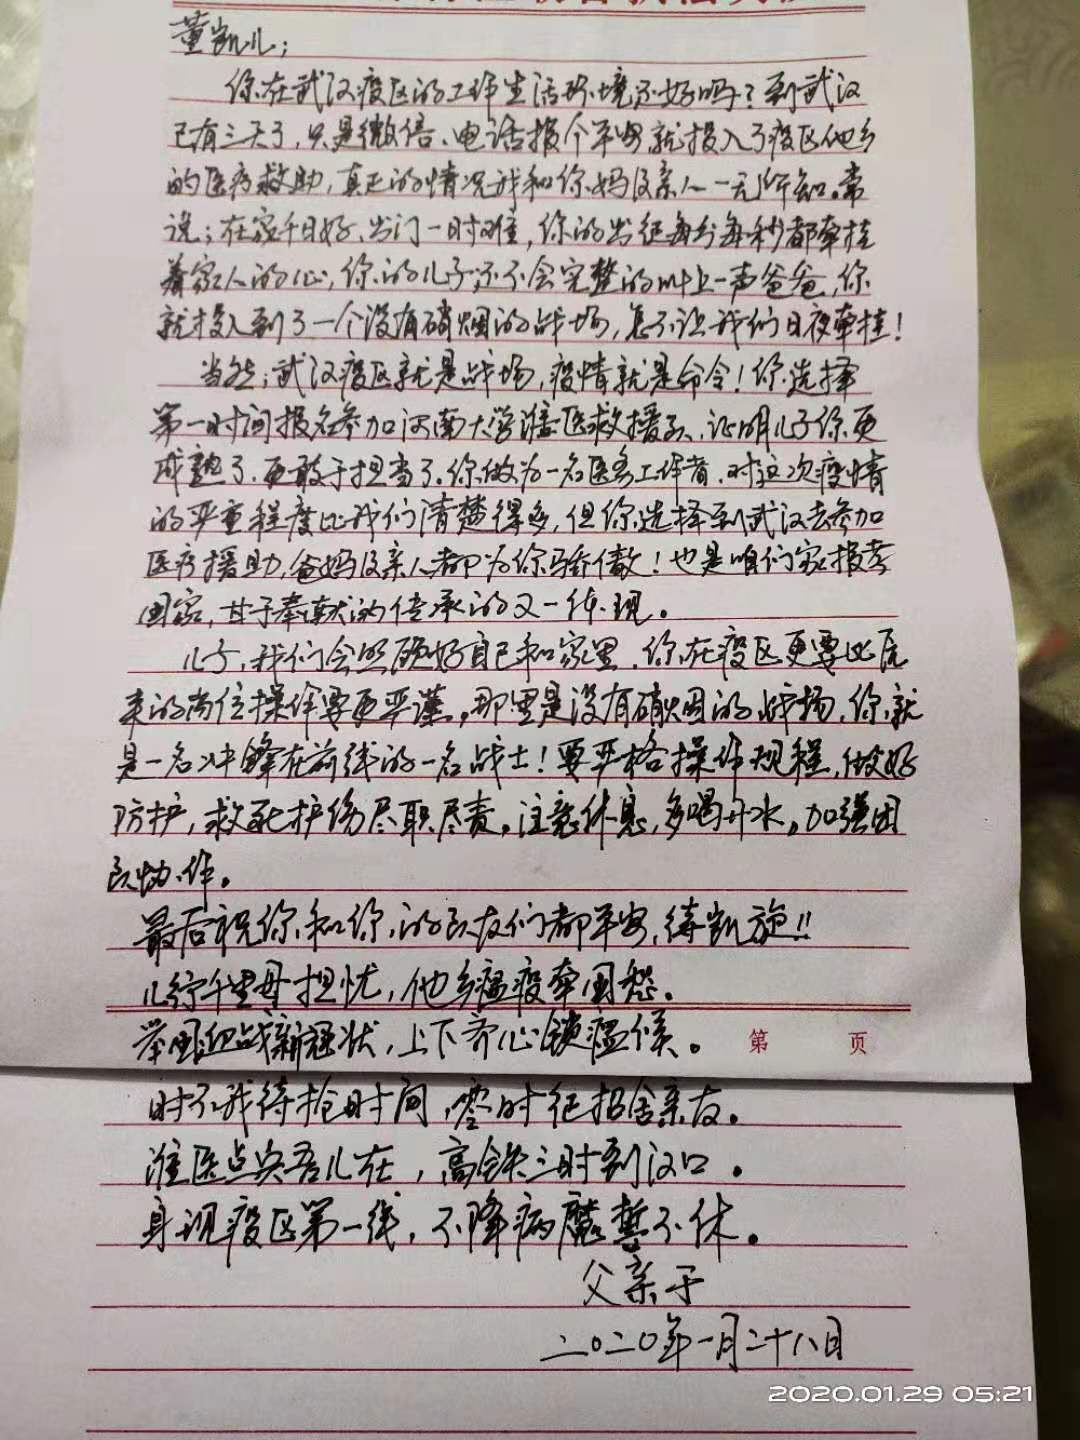 董凯儿：
你在武汉疫区的工作生活环境还好吗？到武汉
已有三天了，只是微信、电话报个平安，就投入了疫区他乡
的医疗救助，真正的情况我和你妈及亲人一无所知。常
说：在家千日好、出门一时难，你的出征每分每秒都牵挂
着家人的心，你的儿子还不会完整的叫上一声爸爸，你
就投入到了一个没有硝烟的战场，怎不让我们日夜牵挂！
当然：武汉疫区就是战场，疫情就是命令！你选择
第一时间报名参加河南大学淮医救援队、证明儿子你更
成熟了，更敢于担当了。你做为一名医务工作者，对这次疫情
的严重程度比我们清楚得多，但你选择到武汉去参加
医疗援助，爸妈及亲人都为你骄傲！也是咱们家报考
国家，甘于奉献的传承的又一体现。
儿子，我们会照顾好自己和家里，你在疫区更要比原
来的岗位操作要更严谨，那里是没有硝烟的战场，你就
是一名冲锋在前线的一名战士！要严格操作规程，做好
防护，救死护伤尽职尽责。注意休息，多喝开水。加强团
队协作。
最后祝你和你的队友们都平安，待凯旋！！
儿行千里母担忧，他乡瘟疫牵国愁。
举国迎战新冠状，上下齐心锁瘟候。
第 页
时不我待抢时间，零时征招舍亲友。
淮医点兵吾儿在，高铁三时到汉口。
身现疫区第一线，不降病魔誓不休。
父亲于
二〇二〇年一月二十八日
2020.01.29 05:21